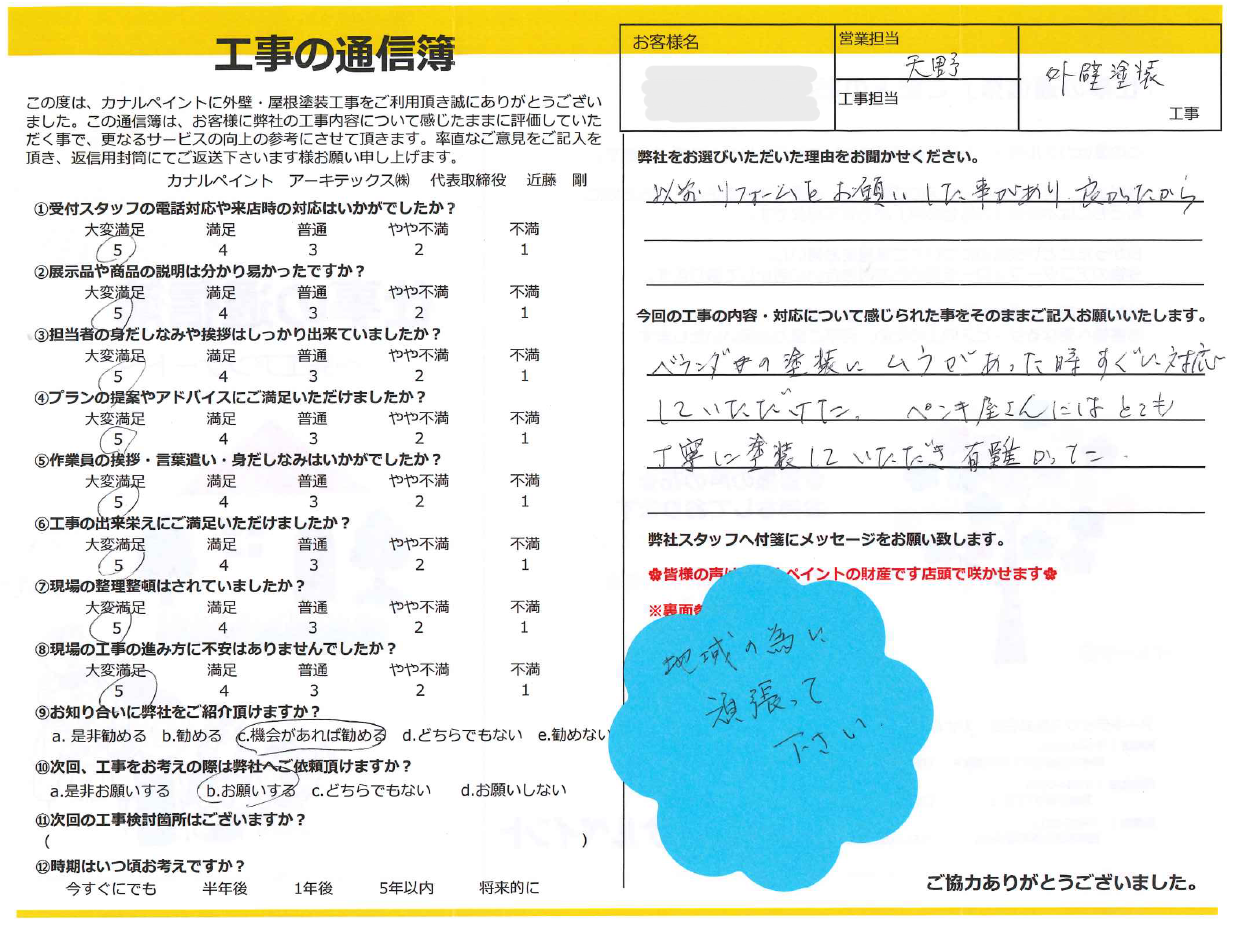 工事の通信簿
この度は、カナルペイントに外壁・屋根塗装工事をご利用頂き誠にありがとうござい
ました。この通信簿は、お客様に弊社の工事内容について感じたままに評価していた
だく事で、更なるサービスの向上の参考にさせて頂きます。率直なご意見をご記入を
頂き、返信用封筒にてご返送下さいます様お願い申し上げます。
カナルペイント アーキテックス㈱ 代表取締役 近藤 剛
①受付スタッフの電話対応や来店時の対応はいかがでしたか？
大変満足 満足 普通 やや不満 不満
5 4 3 2 1
②展示品や商品の説明は分かり易かったですか？
大変満足 満足 普通 やや不満 不満
5 4 3 2 1
③担当者の身だしなみや挨拶はしっかり出来ていましたか？
大変満足 満足 普通 やや不満 不満
5 4 3 2 1
④プランの提案やアドバイスにご満足いただけましたか？
大変満足 満足 普通 やや不満 不満
5 4 3 2 1
⑤作業員の挨拶・言葉遣い・身だしなみはいかがでしたか？
大変満足 満足 普通 やや不満 不満
5 4 3 2 1
⑥工事の出来栄えにご満足いただけましたか？
大変満足 満足 普通 やや不満 不満
5 4 3 2 1
⑦現場の整理整頓はされていましたか？
大変満足 満足 普通 やや不満 不満
5 4 3 2 1
⑧現場の工事の進み方に不安はありませんでしたか？
大変満足 満足 普通 やや不満 不満
5 4 3 2 1
⑨お知り合いに弊社をご紹介頂けますか？
a. 是非勧める b.勧める c.機会があれば勧める d.どちらでもない e.勧めない
⑩次回、工事をお考えの際は弊社へご依頼頂けますか？
a.是非お願いする b.お願いする c.どちらでもない d.お願いしない
⑪次回の工事検討箇所はございますか？
( )
⑫時期はいつ頃お考えですか？
今すぐにでも 半年後 1年後 5年以内 将来的に
お客様名
営業担当
天野
工事担当
外壁塗装
工事
弊社をお選びいただいた理由をお聞かせください。
以前リフォームをお願いした事があり、良かったから
今回の工事の内容・対応について感じられた事をそのままご記入お願いいたします。
ベランダ の塗装にムラがあった時すぐに対応
していただけた。 ペンキ屋さんにはとても
丁寧に塗装していただき有難かった.
弊社スタッフへ付箋にメッセージをお願い致します。
皆様の声は ペイントの財産です店頭で咲かせます
※裏面
地域の為に
頑張って
下さい.
ご協力ありがとうございました。